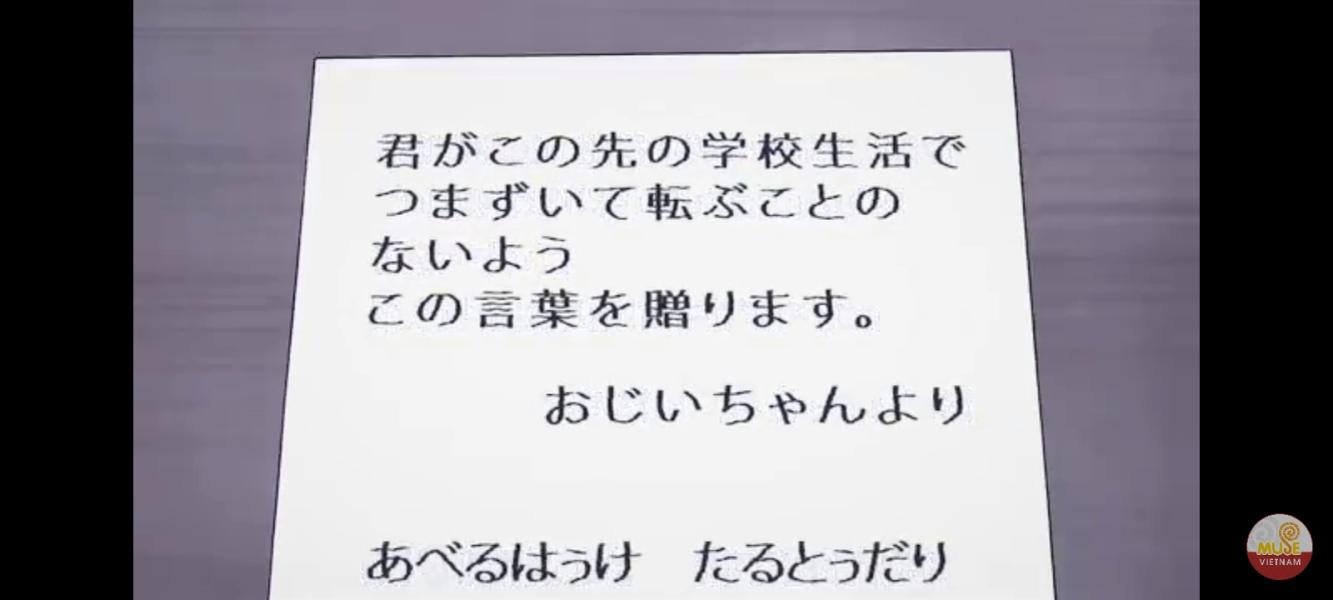 君がこの先の学校生活で
つまずいて転ぶことの
ないよう
この言葉を贈ります。
おじいちゃんより
あべるはぅけ　たるとぅだり
MUSE
VIETNAM